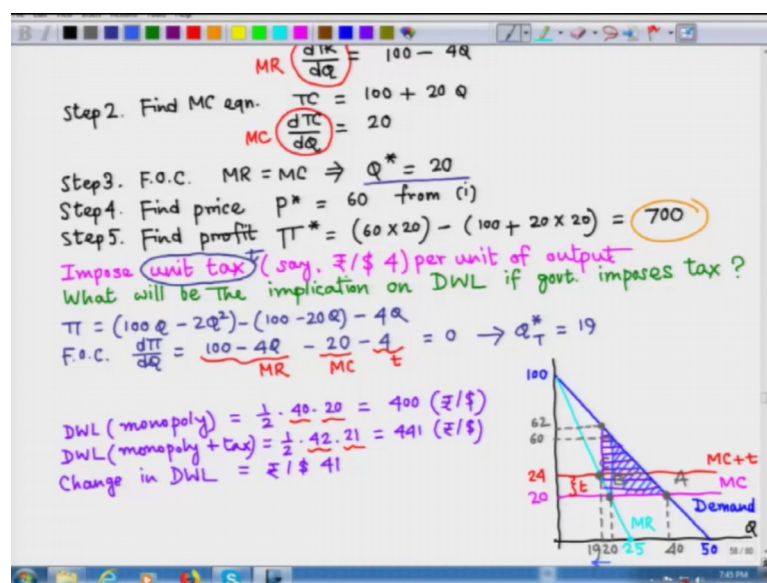 MR dTR/dQ = 100 - 4Q
Step 2. Find MC eqn. TC = 100 + 20 Q
MC dTC/dQ = 20
Step 3. F.O.C. MR = MC ⇒ Q* = 20
Step 4. Find price P* = 60 from (i)
Step 5. Find profit π* = (60 x 20) - (100 + 20 x 20) = 700
Impose unit tax (say, ₹/$ 4) per unit of output
What will be the implication on DWL if govt. imposes tax ?
π = (100 Q - 2Q²) - (100 - 20Q) - 4Q
F.O.C. dπ/dQ = 100 - 4Q - 20 - 4 = 0 → Q*T = 19
MR MC t
DWL (monopoly) = 1/2 · 40 · 20 = 400 (₹/$)
DWL (monopoly + tax) = 1/2 · 42 · 21 = 441 (₹/$)
Change in DWL = ₹/$ 41
100
62
60
24
20
t
MC+t
A
MC
Demand
MR
Q
19 20 25 40 50
58 / 80
7:45 PM